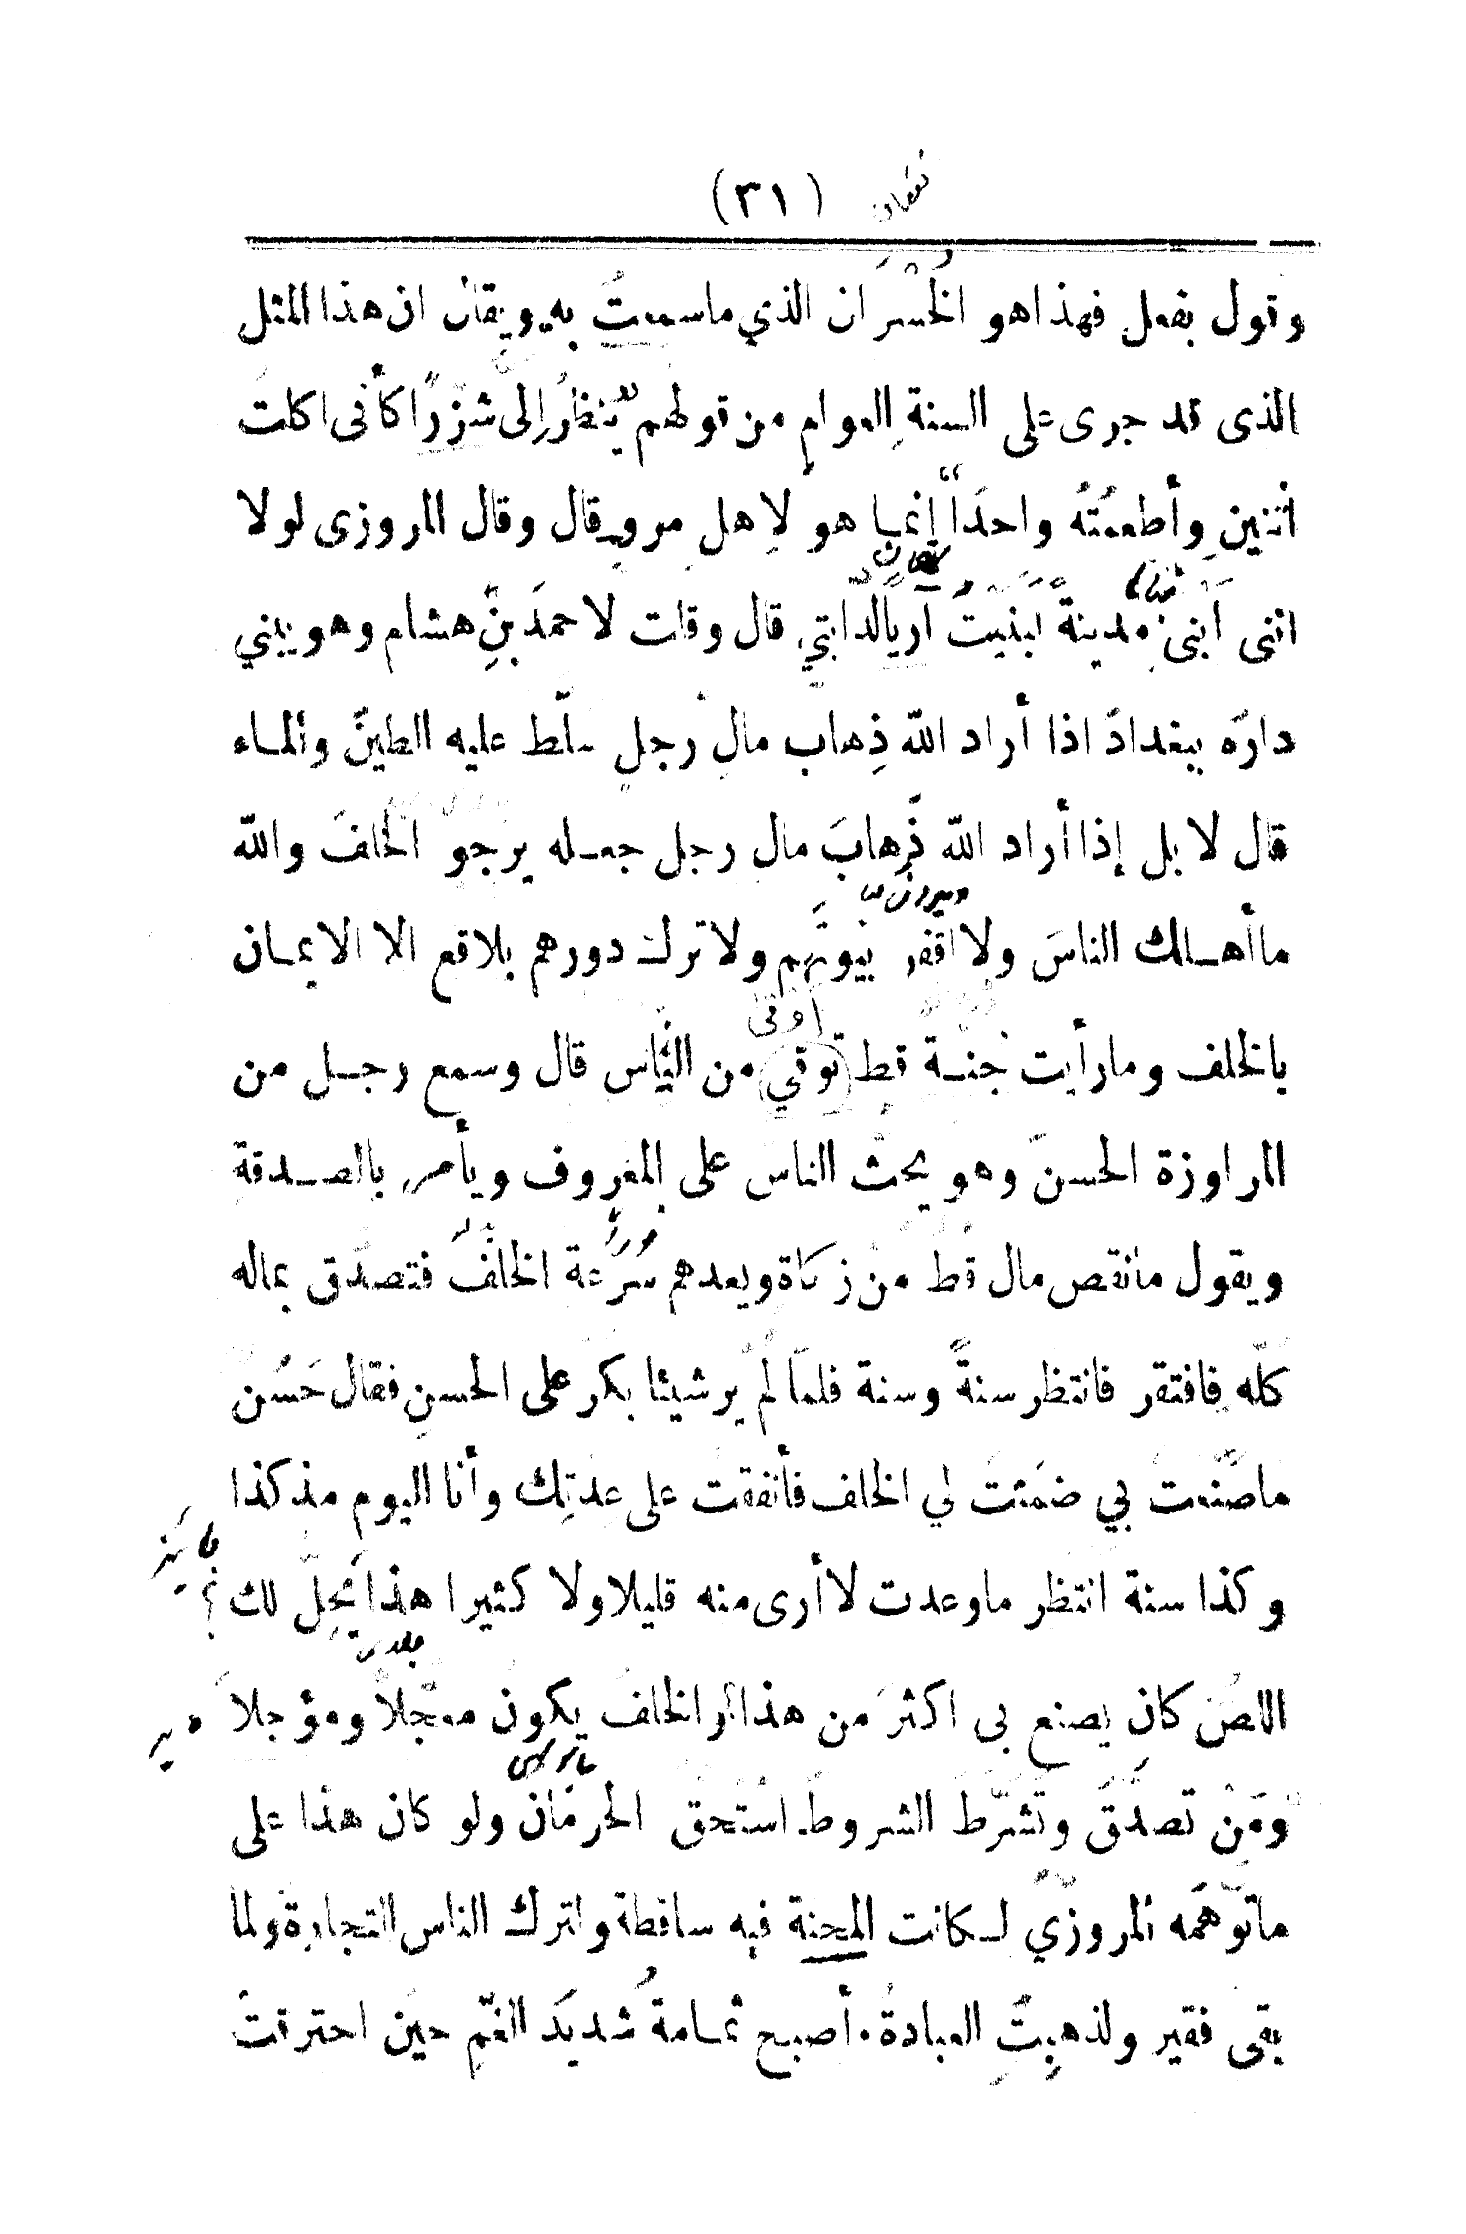 (٣١)
وقول بفعل فهذا هو الخُسران الذي ما سمعتُ به ويقال ان هذا المثل
الذى قد جرى على السنةِ العوامِ من قولهم يَنظُر إلىَّ شَزْرًا كأنى اكلتُ
أثنينِ وأطعمتُهُ واحدًا إنما هو لِاهل مروٍ قال وقال المروزى لولا
اننى أبنى مدينةً لبنيتُ آريًا لدابتي قال وقلت لاحمدَ بنِ هشام وهو يبني
دارَه ببغدادَ اذا أراد اللّه ذِهاب مالِ رجلٍ سلّط عليه الطينَ والماء
قال لا بل إذا أراد اللّه ذَهابَ مال رجل جعله يرجو الخلفَ واللّه
ما أهلك الناسَ ولا اقفر بيوتَهم ولا ترك دورهم بلاقع الا الايمان
بالخلف وما رأيت جُنة قط توقي من اليأس قال وسمع رجل من
المراوزة الحسنَ وهو يحثُّ الناس على المعروف ويأمر بالصدقةِ
ويقول ما نقص مال قطُّ من زكاة ويعدهم سُرْعة الخلفَ فتصدَّق بماله
كلّه فافتقر فانتظر سنةً وسنة فلما لم يَر شيئا بكر على الحسنِ فقال حَسَن
ما صنعتَ بي ضمَنْتَ لي الخلف فأنفقت على عدتِك وأنا اليوم مذ كذا
وكذا سنة انتظر ما وعدت لا أرى منه قليلا ولا كثيرا هذا يَحِلّ لك
اللصُّ كان يصنع بى اكثرَ من هذا والخلفَ يكون معجّلا ومؤجلا
ومَنْ تصدَّقَ وتَشرَّط الشروطَ استحق الحرمان ولو كان هذا على
ما توهّمَه المروزي لكانت المحنة فيه ساقطة ولترك الناس التجارة ولما
بقى فقير ولذهبتِ العبادةُ. أصبح ثمامةُ شديدَ الغّم حين احترقتْ